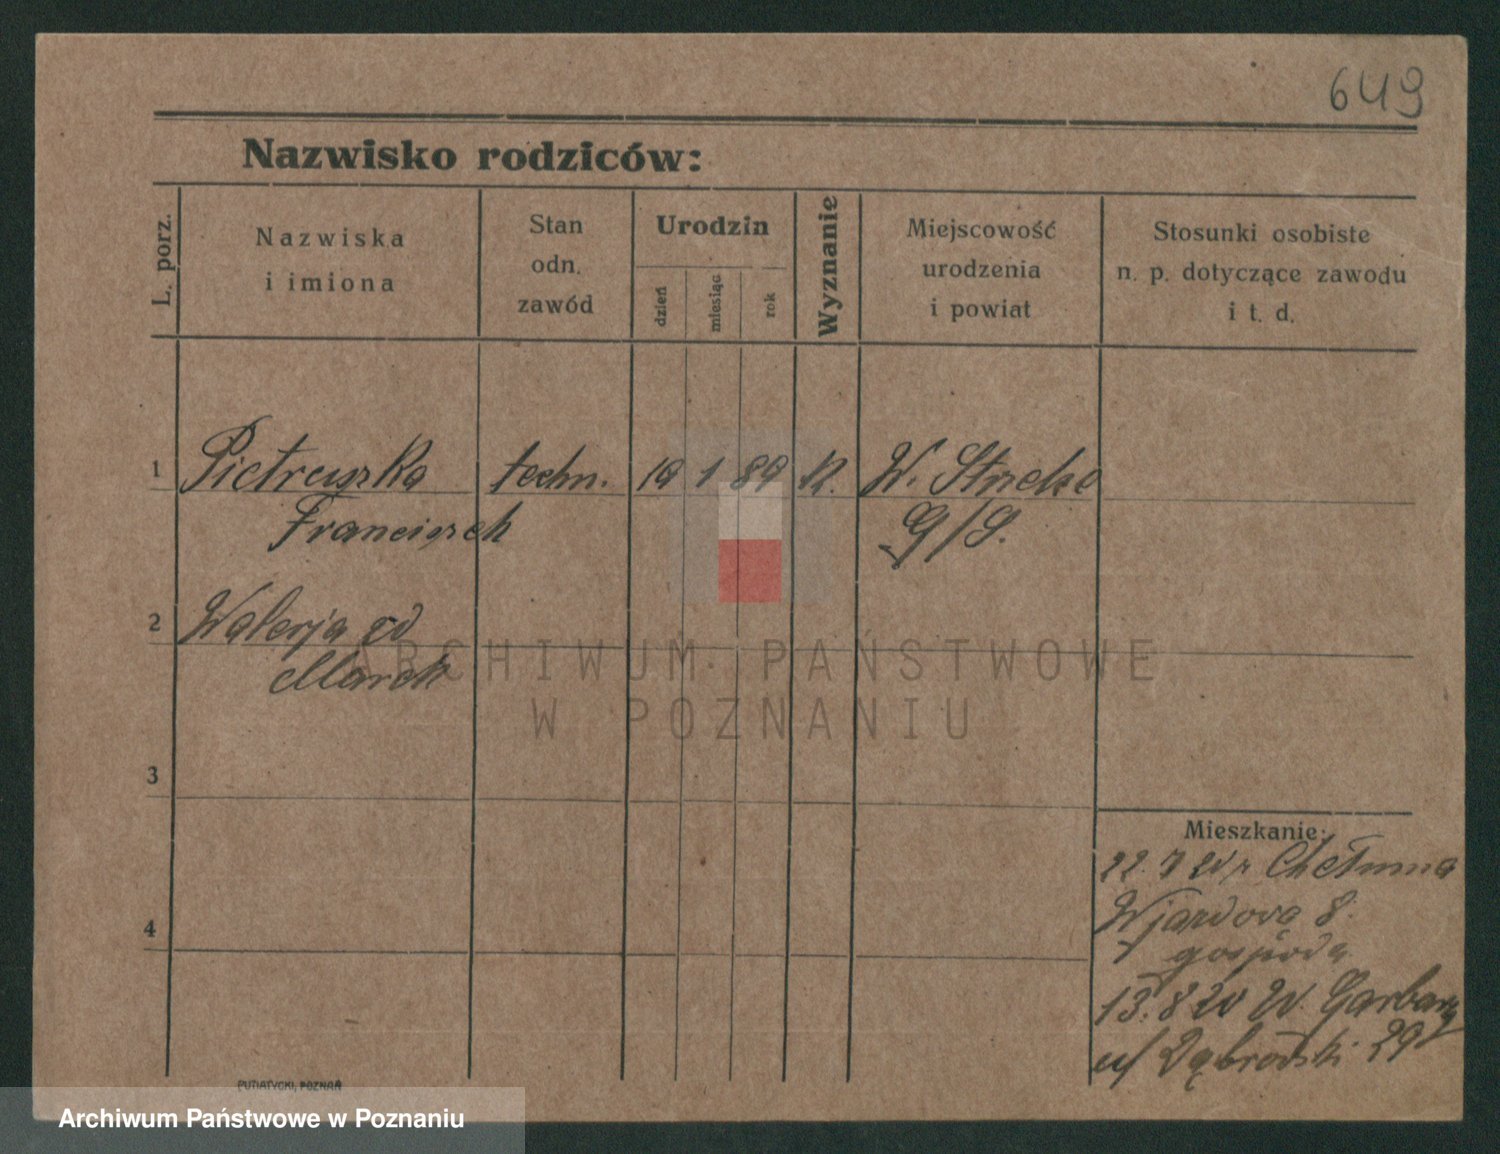 649
Nazwisko rodziców:
L. porz.
Nazwiska
i imiona
Stan
odn.
zawód
Urodzin
dzień
miesiąc
rok
Wyznanie
Miejscowość
urodzenia
i powiat
Stosunki osobiste
n. p. dotyczące zawodu
i t. d.
1 Pietruszka techn. 19 1 89 K. W. Strzelce
Franciszek G/S.
2 Walerja zd
Marek
ARCHIWUM PAŃSTWOWE
W POZNANIU
3
Mieszkanie:
22. 7 20 z Chełmna
Wjazdowa 8.
gospoda
4
13. 8 20 W. Garbary
u/ 29
PUTIATYCKI, POZNAŃ
Archiwum Państwowe w Poznaniu